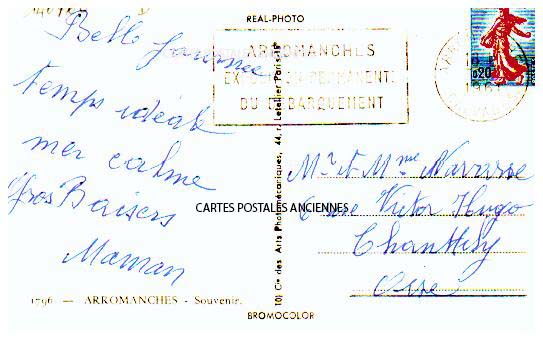 REAL-PHOTO
Belle journée
temps idéal
mer calme
Gros Baisers
Maman
1796. — ARROMANCHES - Souvenir.
ARROMANCHES
EXPOSITION PERMANENTE
DU DÉBARQUEMENT
0,20
Cie des Arts Photomécaniques, 44, r. Letellier Paris-15e
CARTES POSTALES ANCIENNES
Mr et Mme
rue Victor Hugo
Chantilly
Oise
BROMOCOLOR